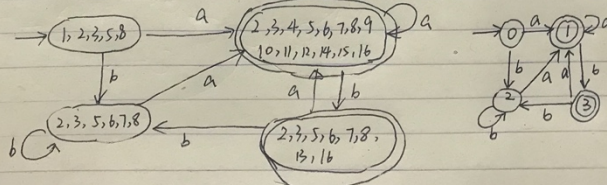 1, 2, 3, 5, 8
a
2, 3, 4, 5, 6, 7, 8, 9
10, 11, 12, 14, 15, 16
a
b
a
a
b
2, 3, 5, 6, 7, 8
b
b
2, 3, 5, 6, 7, 8,
13, 16
0
a
1
a
b
a
a
b
2
b
3
b